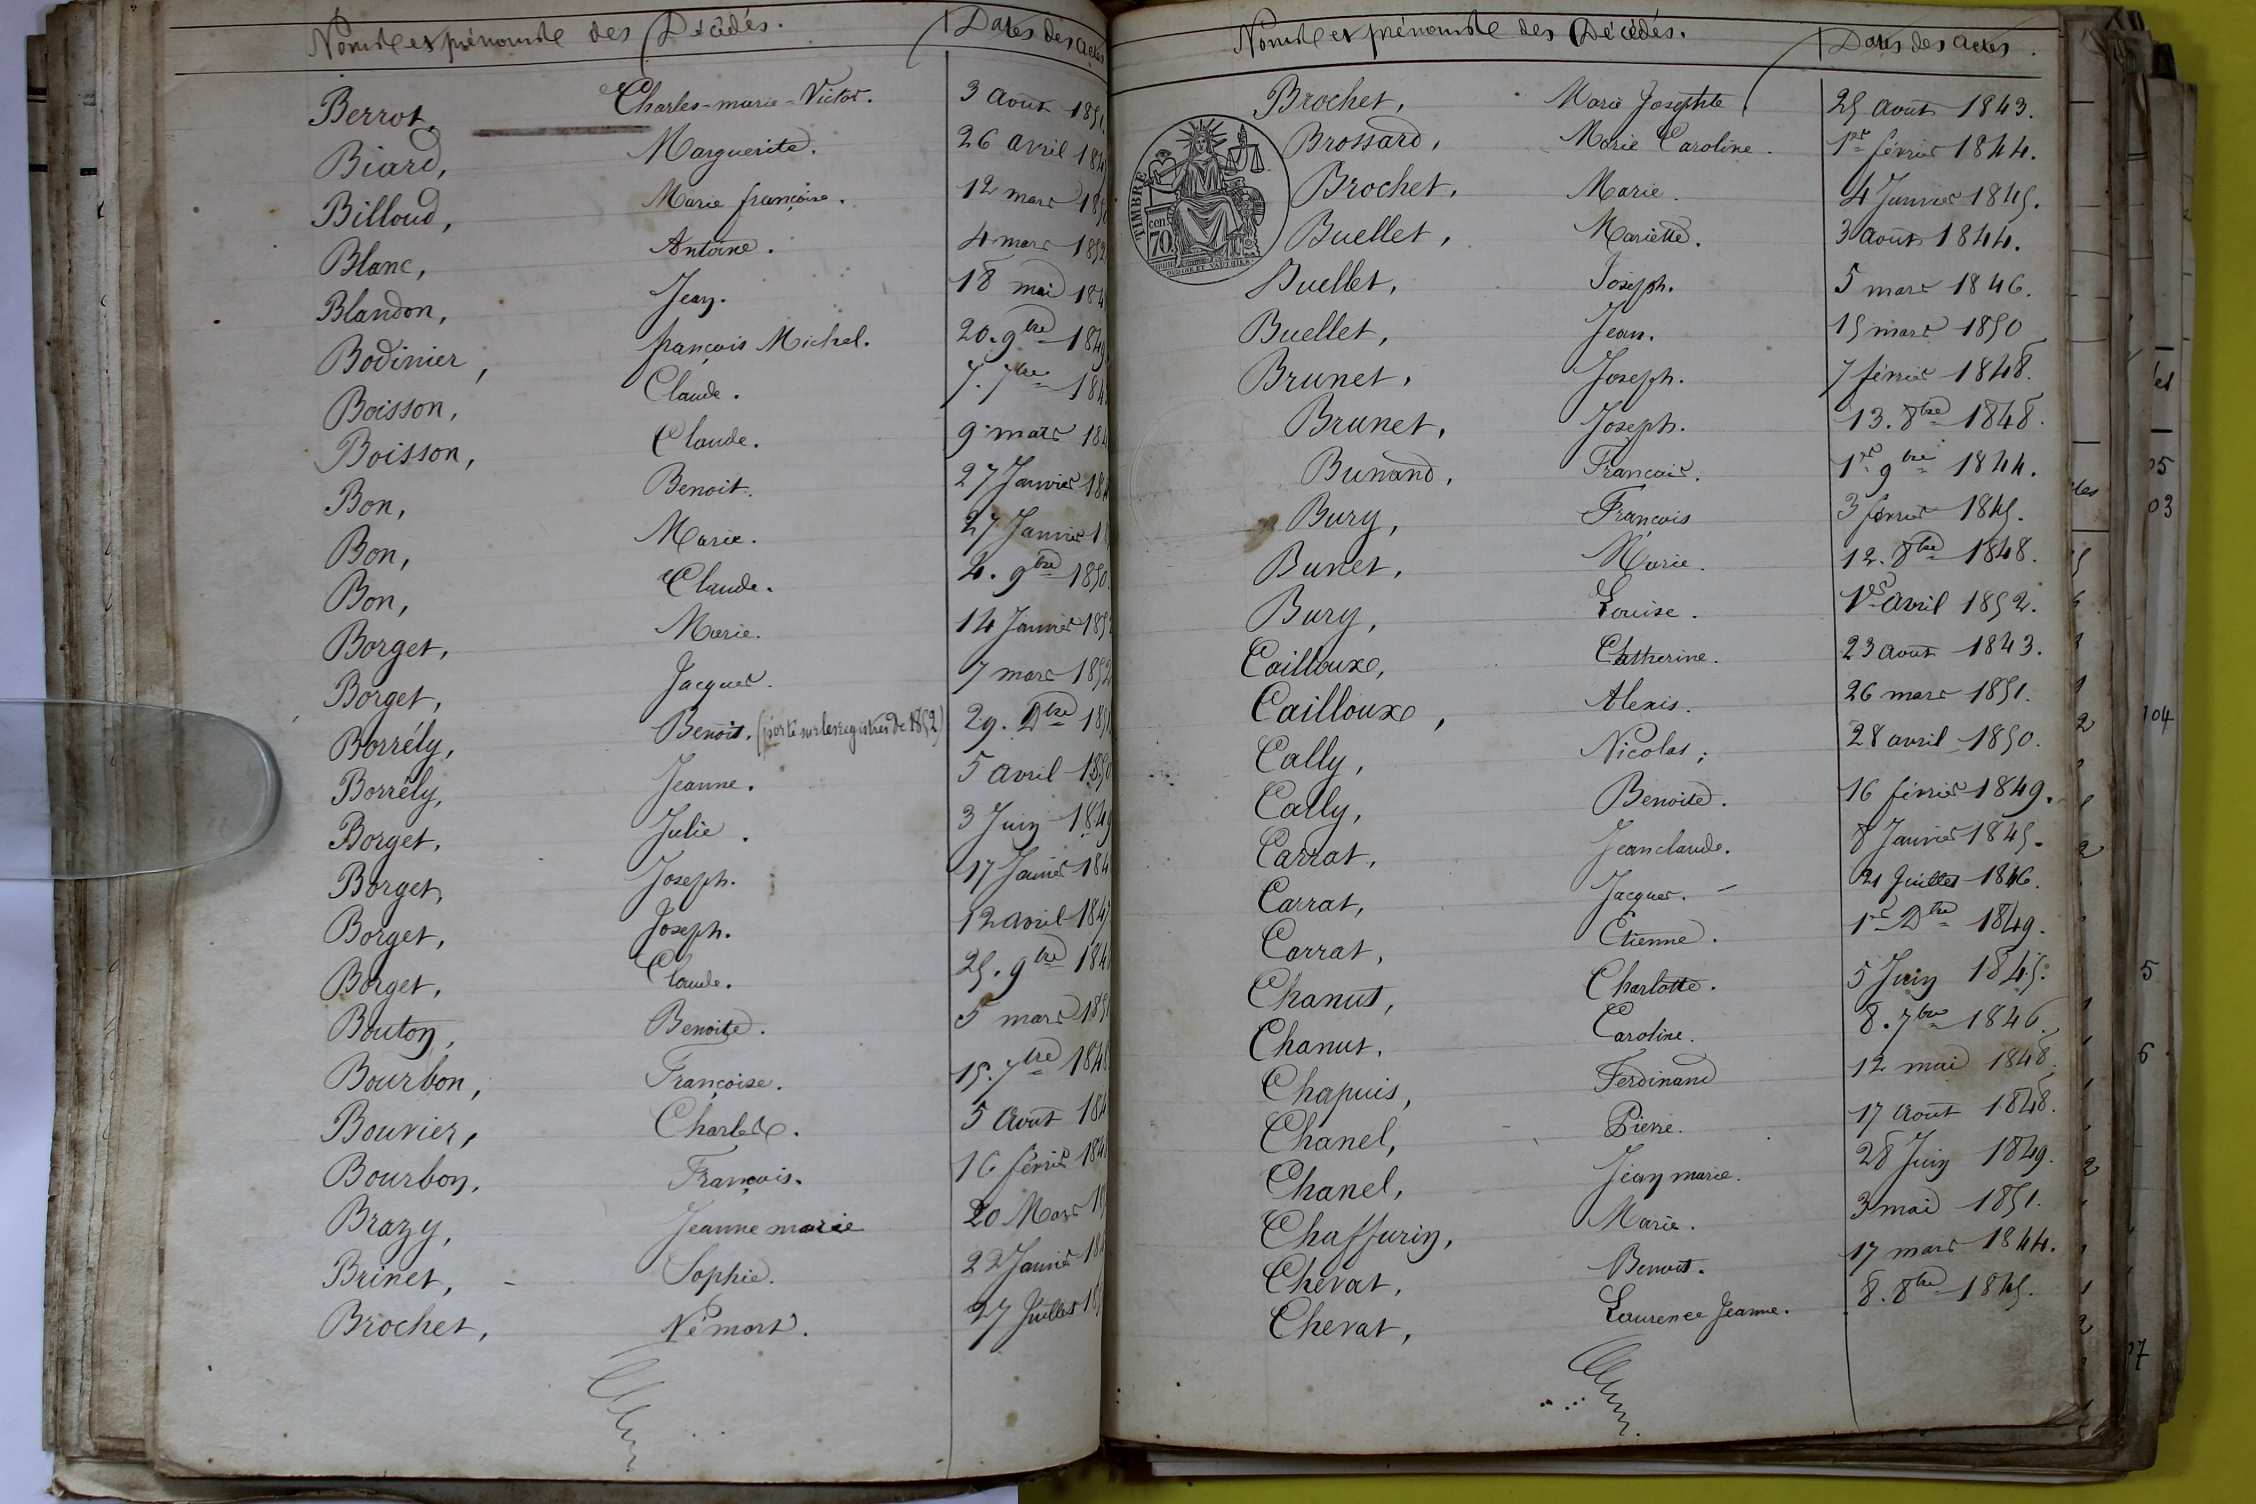 Noms et prénoms des Décédés. Dates des actes
Berrot, Charles-marie-Victor. 3 aout 1851.
Biard, Marguerite. 26 avril 184
Billoud, Marie françoise. 12 mars 185
Blanc, Antoine. 4 mars 1852
Blandon, Jean. 18 mai 184
Bodinier, françois Michel. 20. 9bre 1849
Boisson, Claude. 7. 7bre 184
Boisson, Claude. 9 mars 184
Bon, Benoit. 27 Janvier 184
Bon, Marie. 27 Janvier 1
Bon, Claude. 4. 9bre 1850.
Borget, Marie. 14 Janvier 185
Borget, Jacques. 7 mars 1852
Borrély, Benoit. (porté sur les registres de 1852) 29. Dbre 185
Borrély, Jeanne. 5 avril 1850
Borget, Julie. 3 Juin 1849
Borget, Joseph. 17 Janvier 184
Borget, Joseph. 12 avril 1847
Borget, Claude. 25. 9bre 184
Bouton, Benoite. 5 mars 185
Bourbon, Françoise. 15. 7bre 1848
Bouvier, Charles. 5 Août 184
Bourbon, François. 16 février 184
Brazy, Jeanne marie 20 Mars 1
Brinet, Sophie. 22 Janvier 18
Brochet, Né mort. 27 Juillet 18
Noms et prénoms des Décédés. Dates des actes.
Brochet, Marie Josephte 25 août 1843.
Brossard, Marie Caroline. 1er février 1844.
Brochet, Marie. 4 Janvier 1845.
Buellet, Mariette. 3 août 1844.
Buellet, Joseph. 5 mars 1846.
Buellet, Jean. 15 mars 1850
Brunet, Joseph. 7 février 1848.
Brunet, Joseph. 13. 8bre 1848.
Bunand, François. 1er 9bre 1844.
Bury, François 3 février 1845.
Bunet, Marie. 12. 8bre 1848.
Bury, Louise. 1er avril 1852.
Cailloux, Catherine. 23 août 1843.
Cailloux, Alexis. 26 mars 1851.
Cally, Nicolas; 28 avril 1850.
Cally, Benoite. 16 février 1849.
Carrat, Jeanclaude. 8 Janvier 1845.
Carrat, Jacques. 21 Juillet 1846.
Carrat, Etienne. 1er Dbre 1849.
Chanut, Charlotte. 5 Juin 1845.
Chanut, Caroline. 8. 7bre 1846.
Chapuis, Ferdinand 12 mai 1848.
Chanel, Pierre. 17 Août 1848.
Chanel, Jean marie. 28 Juin 1849.
Chaffurin, Marie. 3 mai 1851.
Chevat, Benoit. 17 mars 1844.
Chevat, Laurence Jeanne. 8. 8bre 1845.
TIMBRE
cen
70
05
03
104
5
6